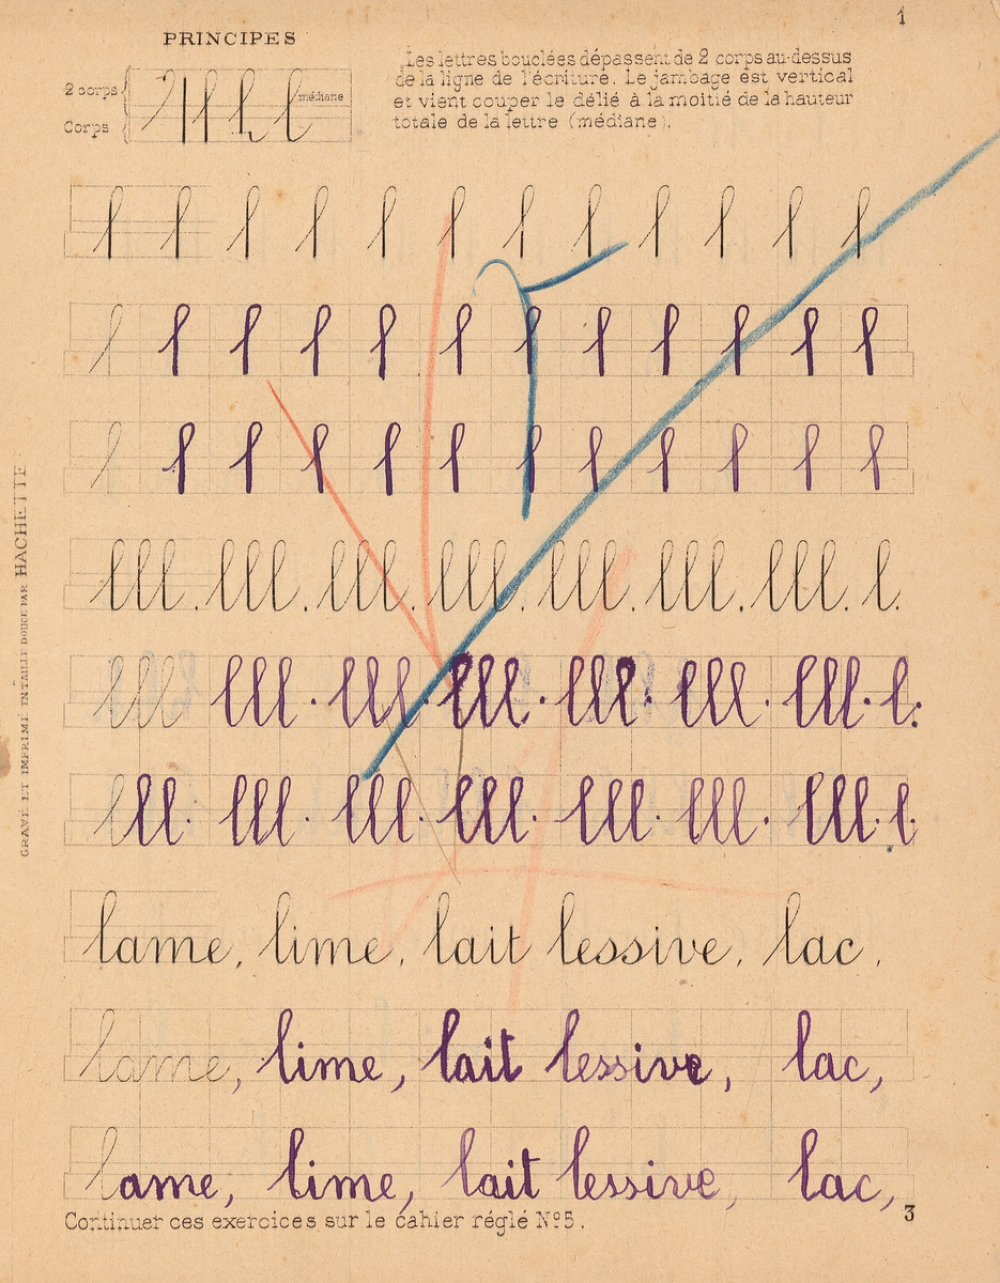 1
PRINCIPES
Les lettres bouclées dépassent de 2 corps au-dessus
de la ligne de l'écriture. Le jambage est vertical
et vient couper le délié à la moitié de la hauteur
totale de la lettre (médiane).
2 corps
Corps
médiane
l l l l l l l l l l l l
l l l l l l l l l l l l
l l l l l l l l l l l l
lll. lll. lll. lll. lll. lll. lll. l.
lll lll. lll lll. lll. lll. lll. l.
lll. lll. lll. lll. lll. lll. lll. l.
lame, lime, lait lessive, lac,
lame, lime, lait lessive, lac,
lame, lime, lait lessive, lac,
Continuer ces exercices sur le cahier réglé Nº 5.
3
GRAVÉ ET IMPRIMÉ EN TAILLE DOUCE PAR HACHETTE